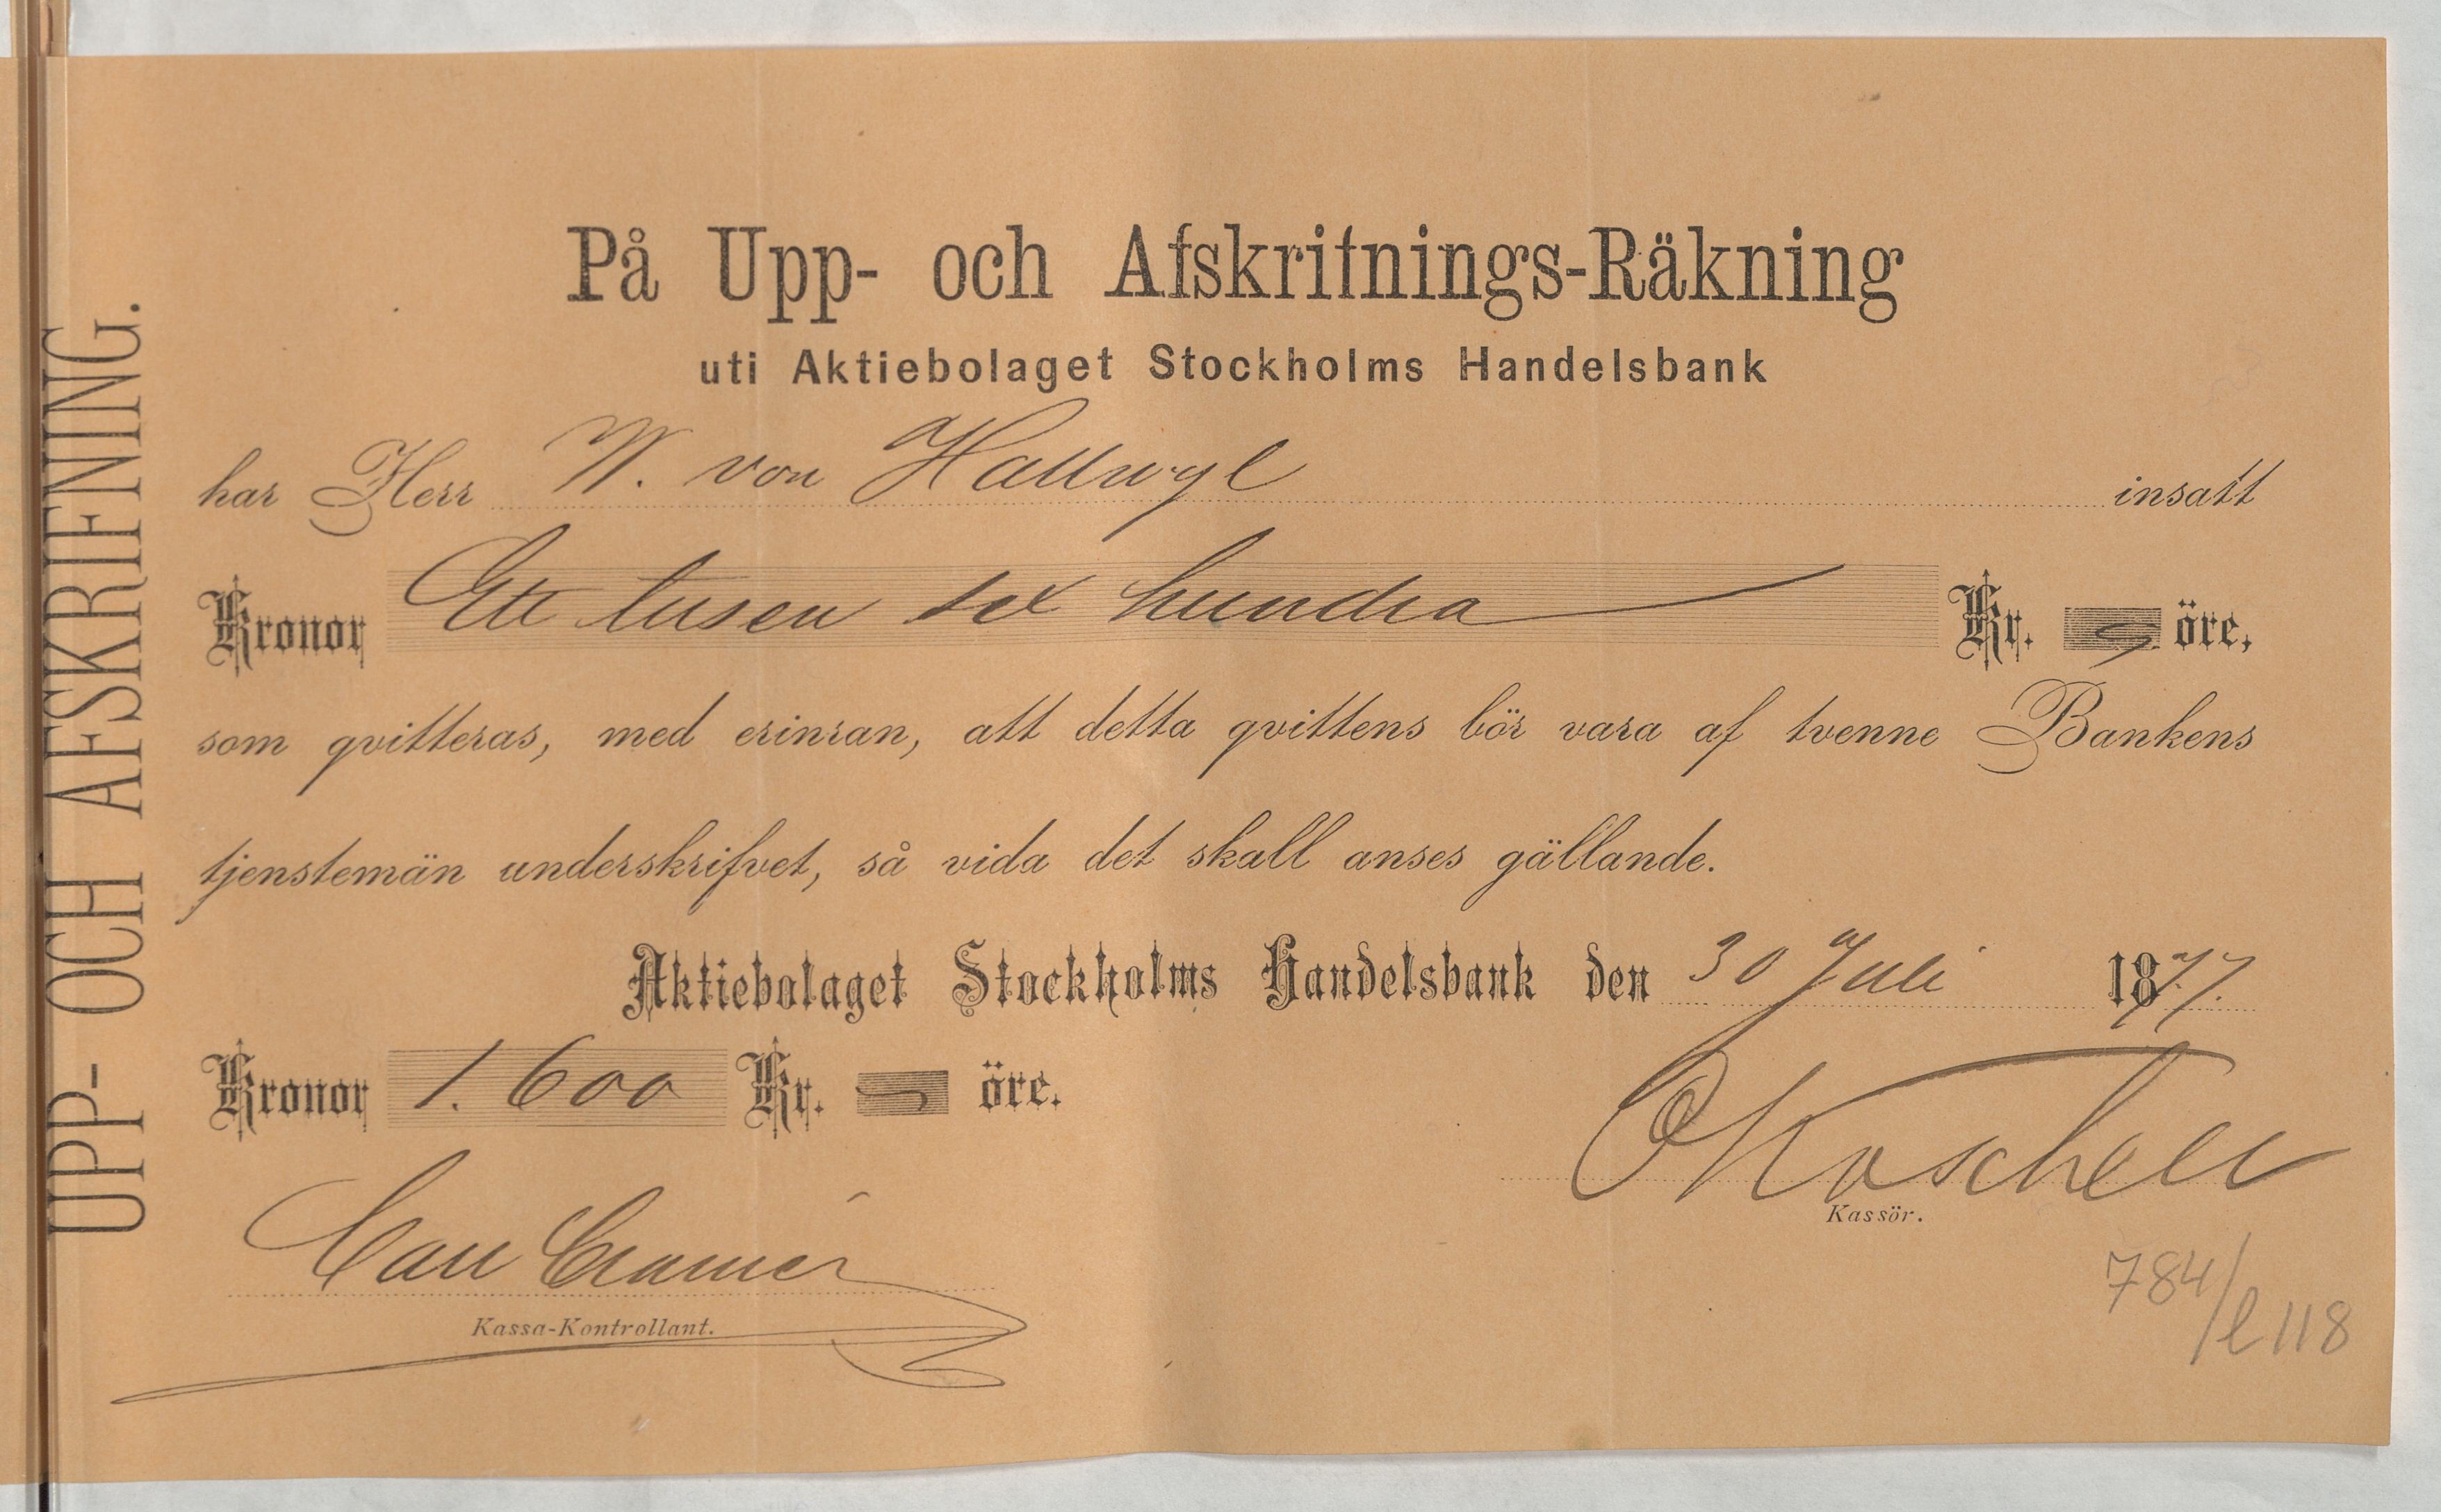 UPP- OCH AFSKRIFNING.
På Upp- och Afskrifnings-Räkning
uti Aktiebolaget Stockholms Handelsbank
har Herr W. von Hallwyl insatt
Kronor Ett tusen sex hundra Kr. öre,
som qvitteras, med erinran, att detta qvittens bör vara af tvenne Bankens
tjenstemän underskrifvet, så vida det skall anses gällande.
Aktiebolaget Stockholms Handelsbank den 30 Juli 1877.
Kronor 1.600 Kr. öre.
Carl Cramér
Kassa-Kontrollant.
Kassör.
784/l 118